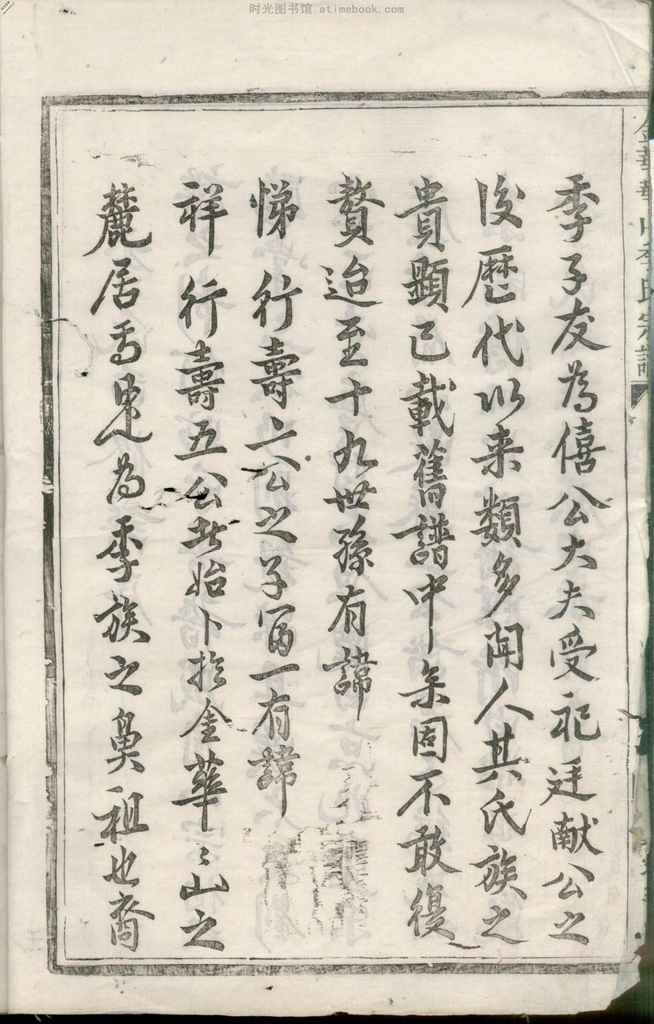 时光图书馆 .atimebook.com
季子友為僖公大夫受祀廷献公之
後歷代以来類多聞人其氏族之
貴顯已載舊譜中矣固不敢復
贅迨至十九世孫有諱
悌行壽六公之子冨一有諱
祥行壽五公者始卜扵金華〻山之
麓居焉是為季族之鼻祖也裔